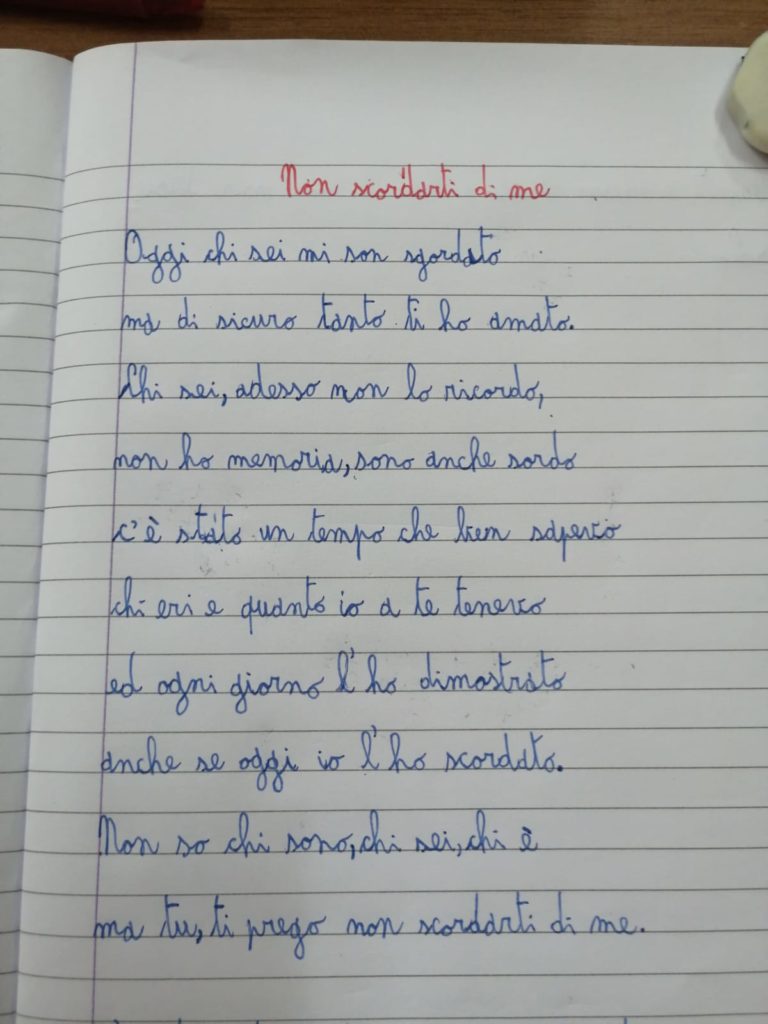 Non scordarti di me
Oggi chi sei mi son sgordato
ma di sicuro tanto ti ho amato.
Chi sei, adesso non lo ricordo,
non ho memoria, sono anche sordo
c'è stato un tempo che ben sapevo
chi eri e quanto io a te tenevo
ed ogni giorno l'ho dimostrato
anche se oggi io l'ho scordato.
Non so chi sono, chi sei, chi è
ma tu, ti prego non scordarti di me.